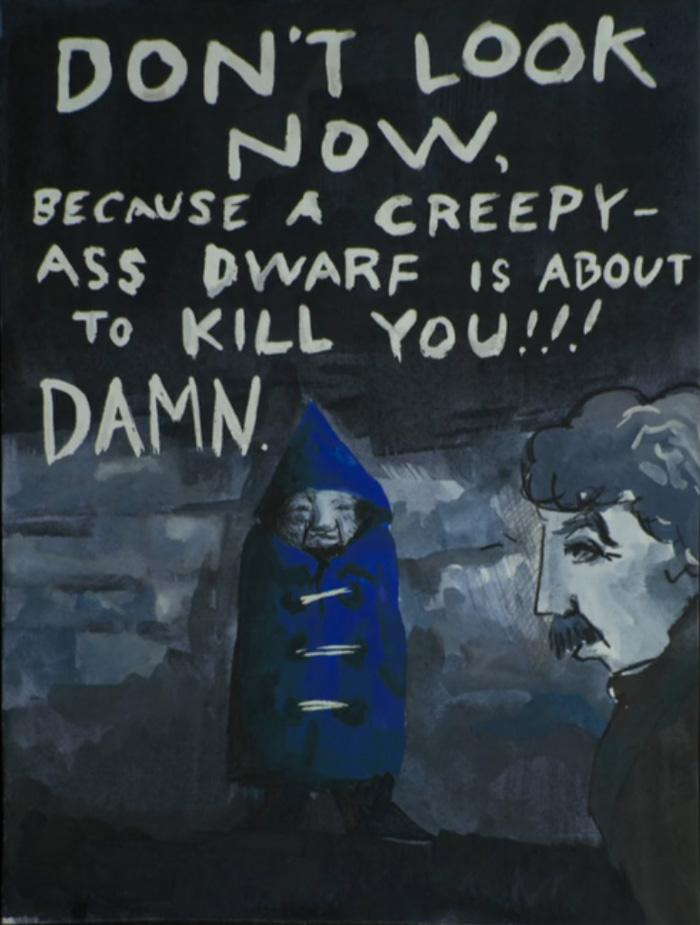 DON'T LOOK
NOW,
BECAUSE A CREEPY-
ASS DWARF IS ABOUT
TO KILL YOU!!!
DAMN.